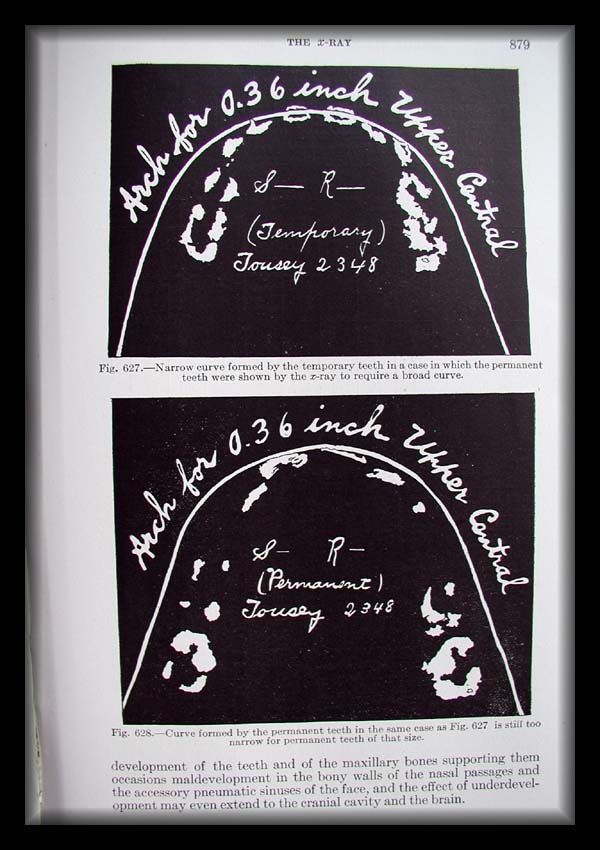 THE X-RAY 879
Arch for 0.36 inch Upper Central
S— R—
(Temporary)
Tousey 2348
Fig. 627.—Narrow curve formed by the temporary teeth in a case in which the permanent
teeth were shown by the x-ray to require a broad curve.
Arch for 0.36 inch Upper Central
S— R—
(Permanent)
Tousey 2348
Fig. 628.—Curve formed by the permanent teeth in the same case as Fig. 627 is still too
narrow for permanent teeth of that size.
development of the teeth and of the maxillary bones supporting them
occasions maldevelopment in the bony walls of the nasal passages and
the accessory pneumatic sinuses of the face, and the effect of underdevel-
opment may even extend to the cranial cavity and the brain.